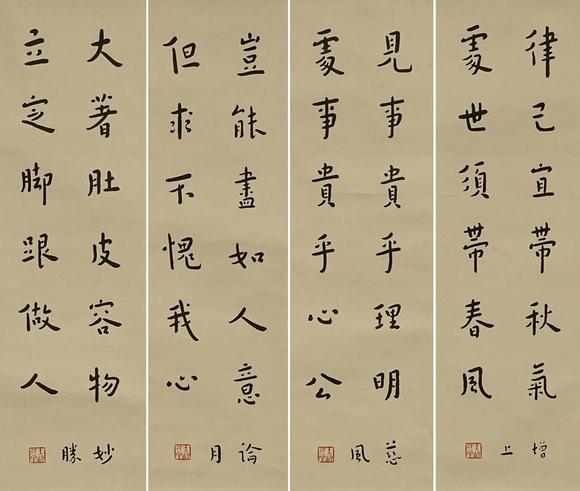 律己宜帶秋氣
處世須帶春風
增上
見事貴乎理明
處事貴乎心公
慈風
豈能盡如人意
但求不愧我心
論月
大著肚皮容物
立定脚跟做人
妙勝